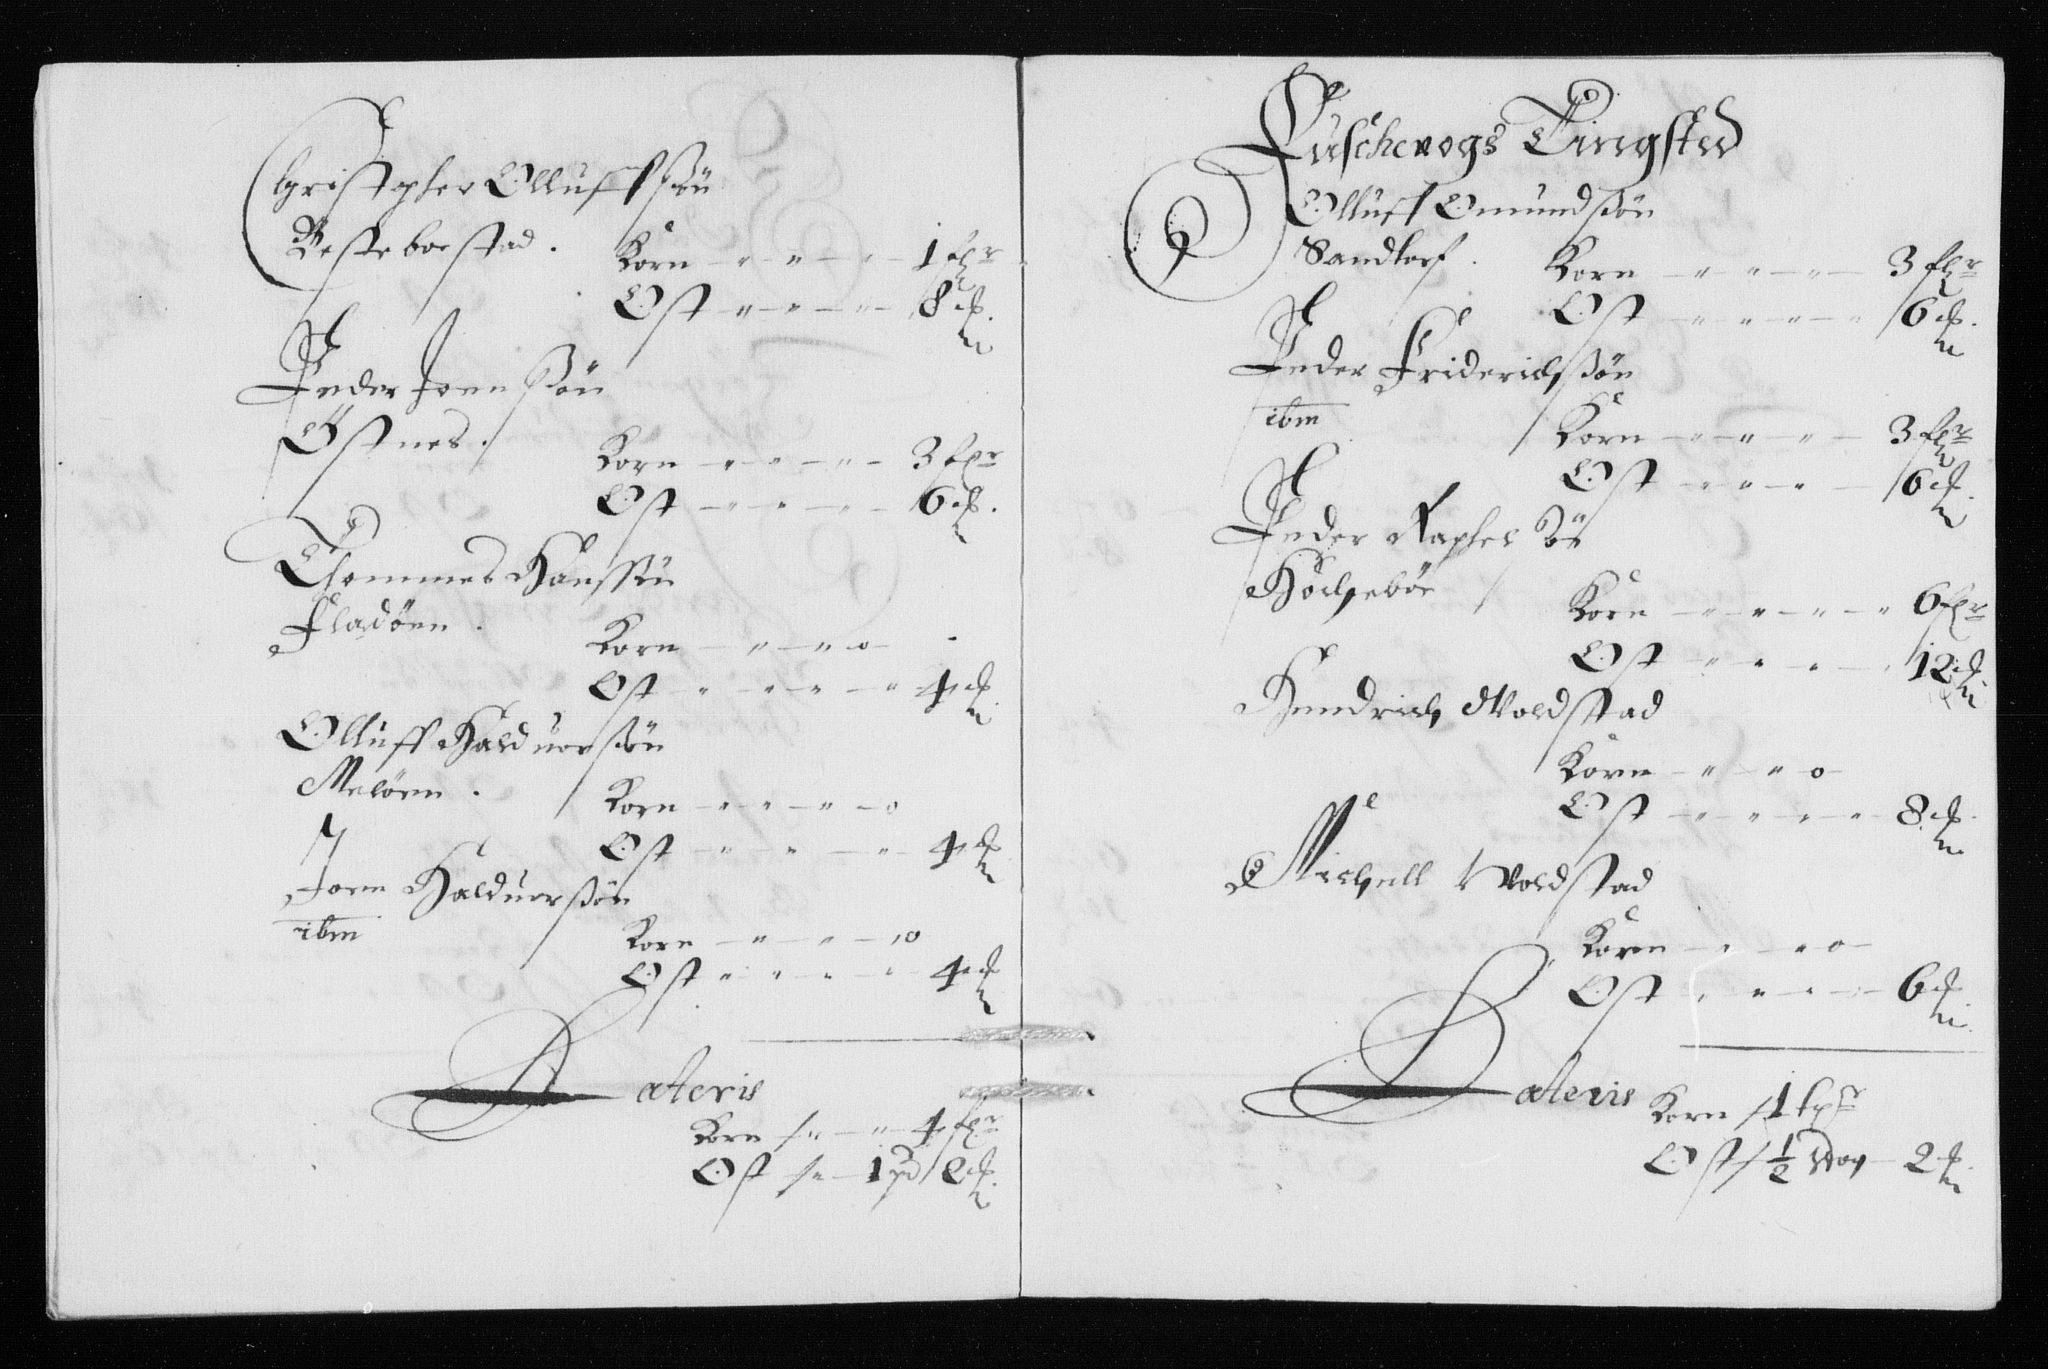 Christopher Olluffssøn
Besteboestad .
Korn - " - " - 1 fxr
Ost " - " - " - 8 ℔.
Peder Joenssøn
Østnes.
Korn - " - " - " - 3 fxr
Ost - " - " - " - 6 ℔.
Thommes Hanssøn
Fladøen .
Korn - " - " o -
Ost - " - " - " - 4 ℔
Olluff Halduorssøn
Meløen .
Korn - " - " - " - o
Ost - " - " - " 4 ℔
Joen Halduorssøn
ibm
Korn - " - " - o
Ost " - " - " - 4 ℔
Lateris
Korn / " - " 4 fxr
Ost / " - 1 pd 2 ℔.
Fuschevogs Tingsted
Olluff Omundssøn
Sandtorf .
Korn - " - " - " - 3 fxr
Ost - " - " - " 6 ℔.
Peder Friderichssøn
ibm
Korn - " - " - " - 3 fxr
Ost - " - " - 6 ℔.
Peder Raphelsøn
Hochebøe
Korn - " - " - " - " 6 fxr
Ost - " - " - " - 12 ℔
Hendrich Woldstad
Korn - " - " o -
Ost - " - " - " - " 8 ℔.
Michell Woldstad
Korn - " - " o -
Ost - " - " - " - 6 ℔.
Lateris
Korn / 1
Ost / ½ Wog - 2 ℔.